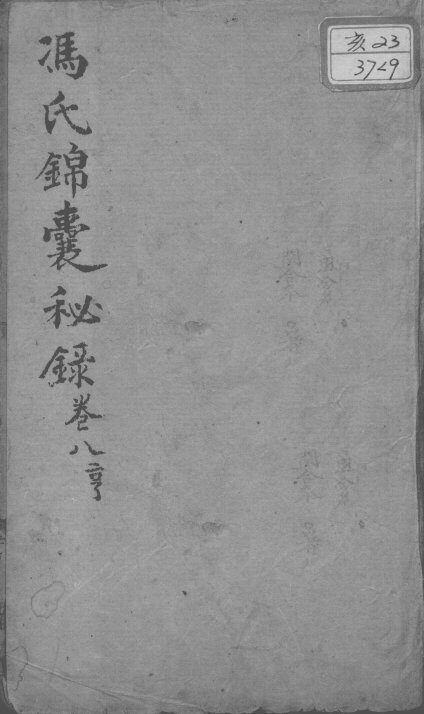 馮氏錦囊秘録卷八亨
亥23
3729